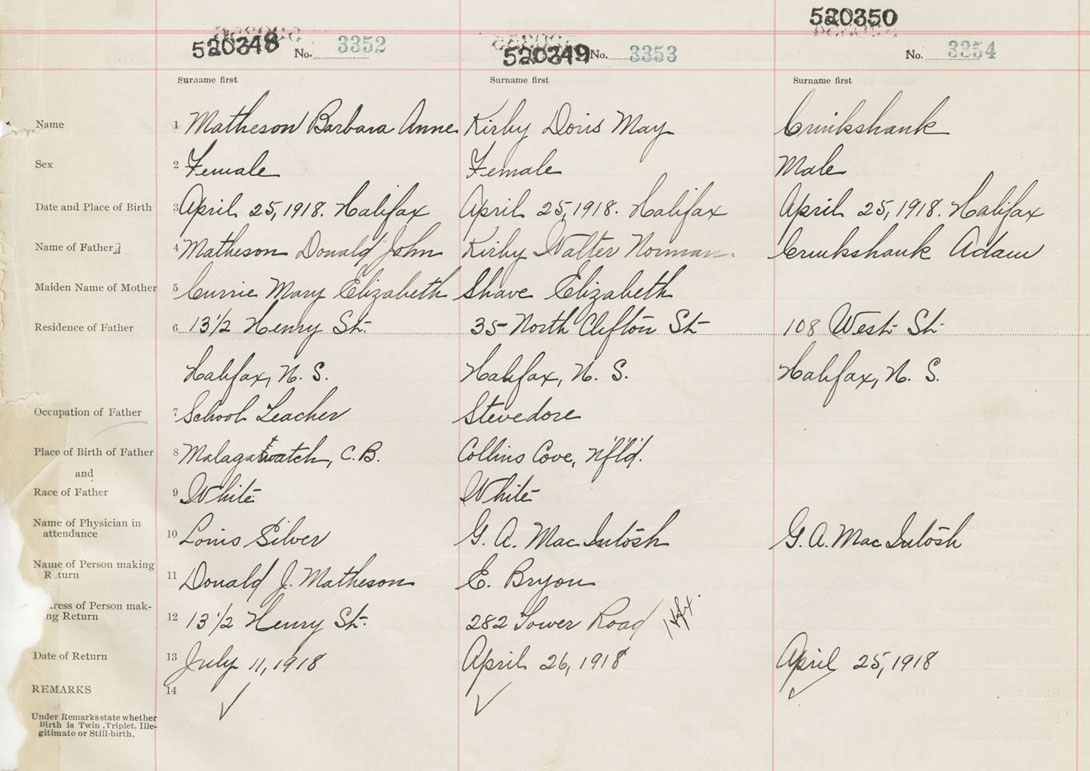 520348 No. 3352 520349 No. 3353 520350 No. 3354
Surname first Surname first Surname first
Name 1 Matheson Barbara Anne Kirby Doris May Cruikshank
Sex 2 Female Female Male
Date and Place of Birth 3 April 25, 1918. Halifax April 25, 1918. Halifax April 25, 1918. Halifax
Name of Father 4 Matheson Donald John Kirby Walter Norman. Cruikshank Adam
Maiden Name of Mother 5 Currie Mary Elizabeth Shave Elizabeth
Residence of Father 6 13½ Henry St. 35 North Clifton St. 108 West St.
Halifax, N. S. Halifax, N. S. Halifax, N. S.
Occupation of Father 7 School Teacher Stevedore
Place of Birth of Father 8 Malagawatch, C.B. Collins Cove, Nfld.
and
Race of Father 9 White White
Name of Physician in
attendance 10 Louis Silver G. A. MacIntosh G. A. MacIntosh
Name of Person making
Return 11 Donald J. Matheson E. Bryon
ress of Person mak-
ng Return 12 13½ Henry St. 282 Tower Road Hfx.
Date of Return 13 July 11, 1918 April 26, 1918 April 25, 1918
REMARKS 14
Under Remarks state whether
Birth is Twin, Triplet, Ille-
gitimate or Still-birth.